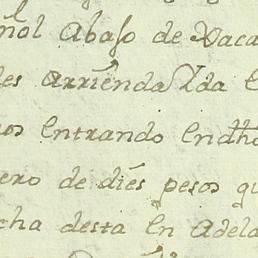 ñol Abaſo de Vaca
les arriénda Y da e
ros entrando en dho
ero de diés pesos qu
cha desta en adela